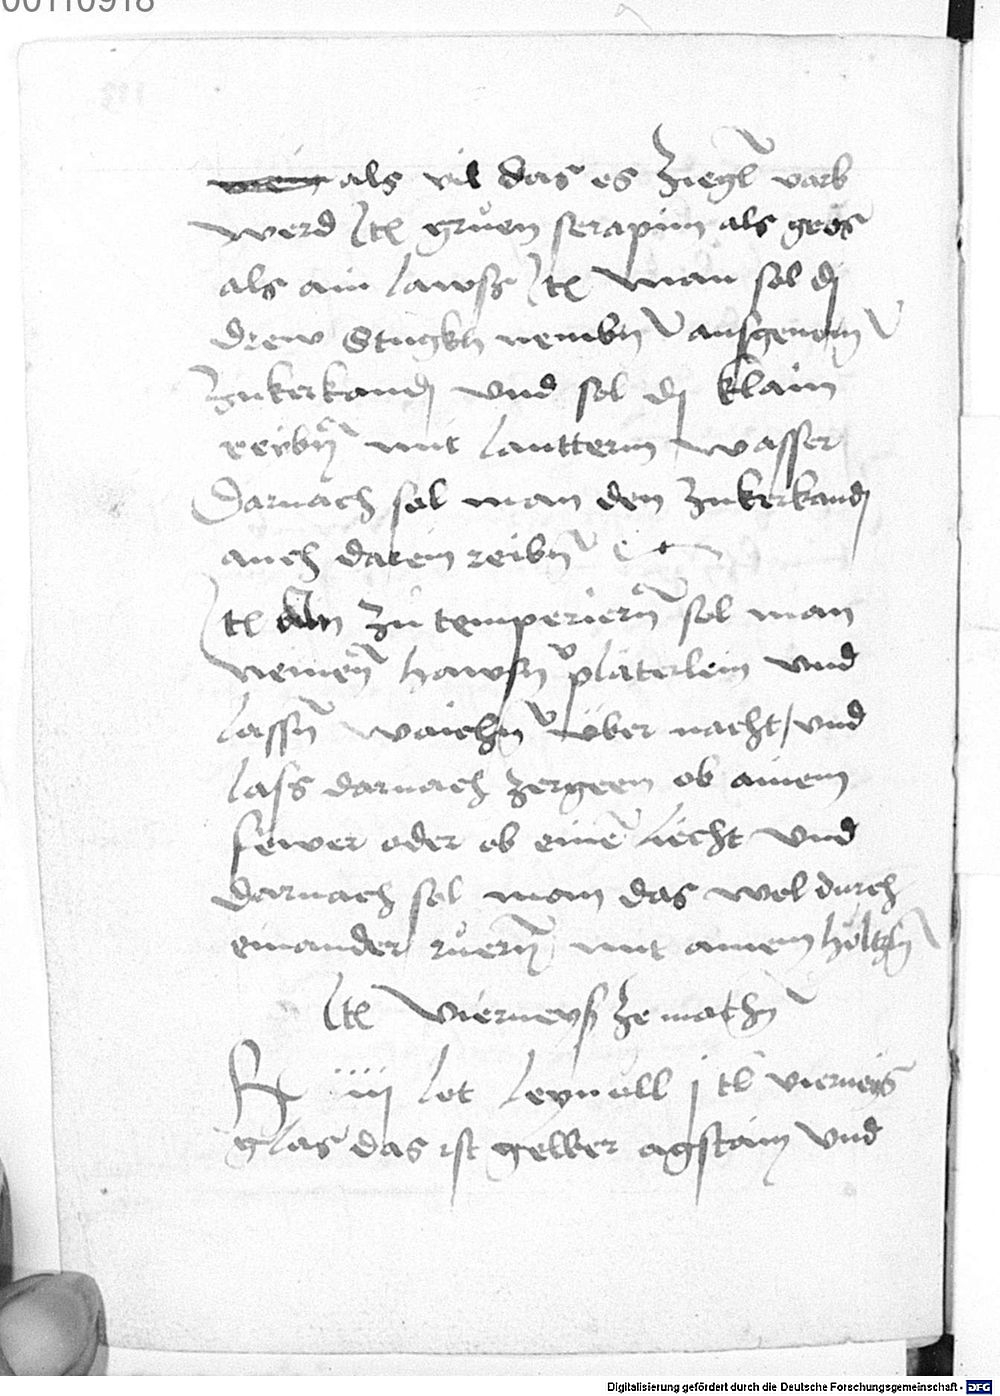 00110918
als vil das es Ziegl varb
werd Itē grüen serapim als gros
als ain lawsz Itē man sol dj
drew Stugkh nembn ausgenom
Zukerkandj vnd sol dj klain
reybn mit lautterm wasser
Darnach sol man den Zukerkandj
auch darein reibn
Itē zu temperiern sol man
nemen hawsn platerlein vnd
lassn waichn über nacht / vnd
lass darnach zergeen ob ainem
fewer oder ob einē liecht vnd
darnach sol man das wol durch
einander rüern mit ainem höltzln
Itē vierneys ze machn
R iiij lot leynöll j vierneis
glas das ist gelber agstain vnd
Digitalisierung gefördert durch die Deutsche Forschungsgemeinschaft - DFG